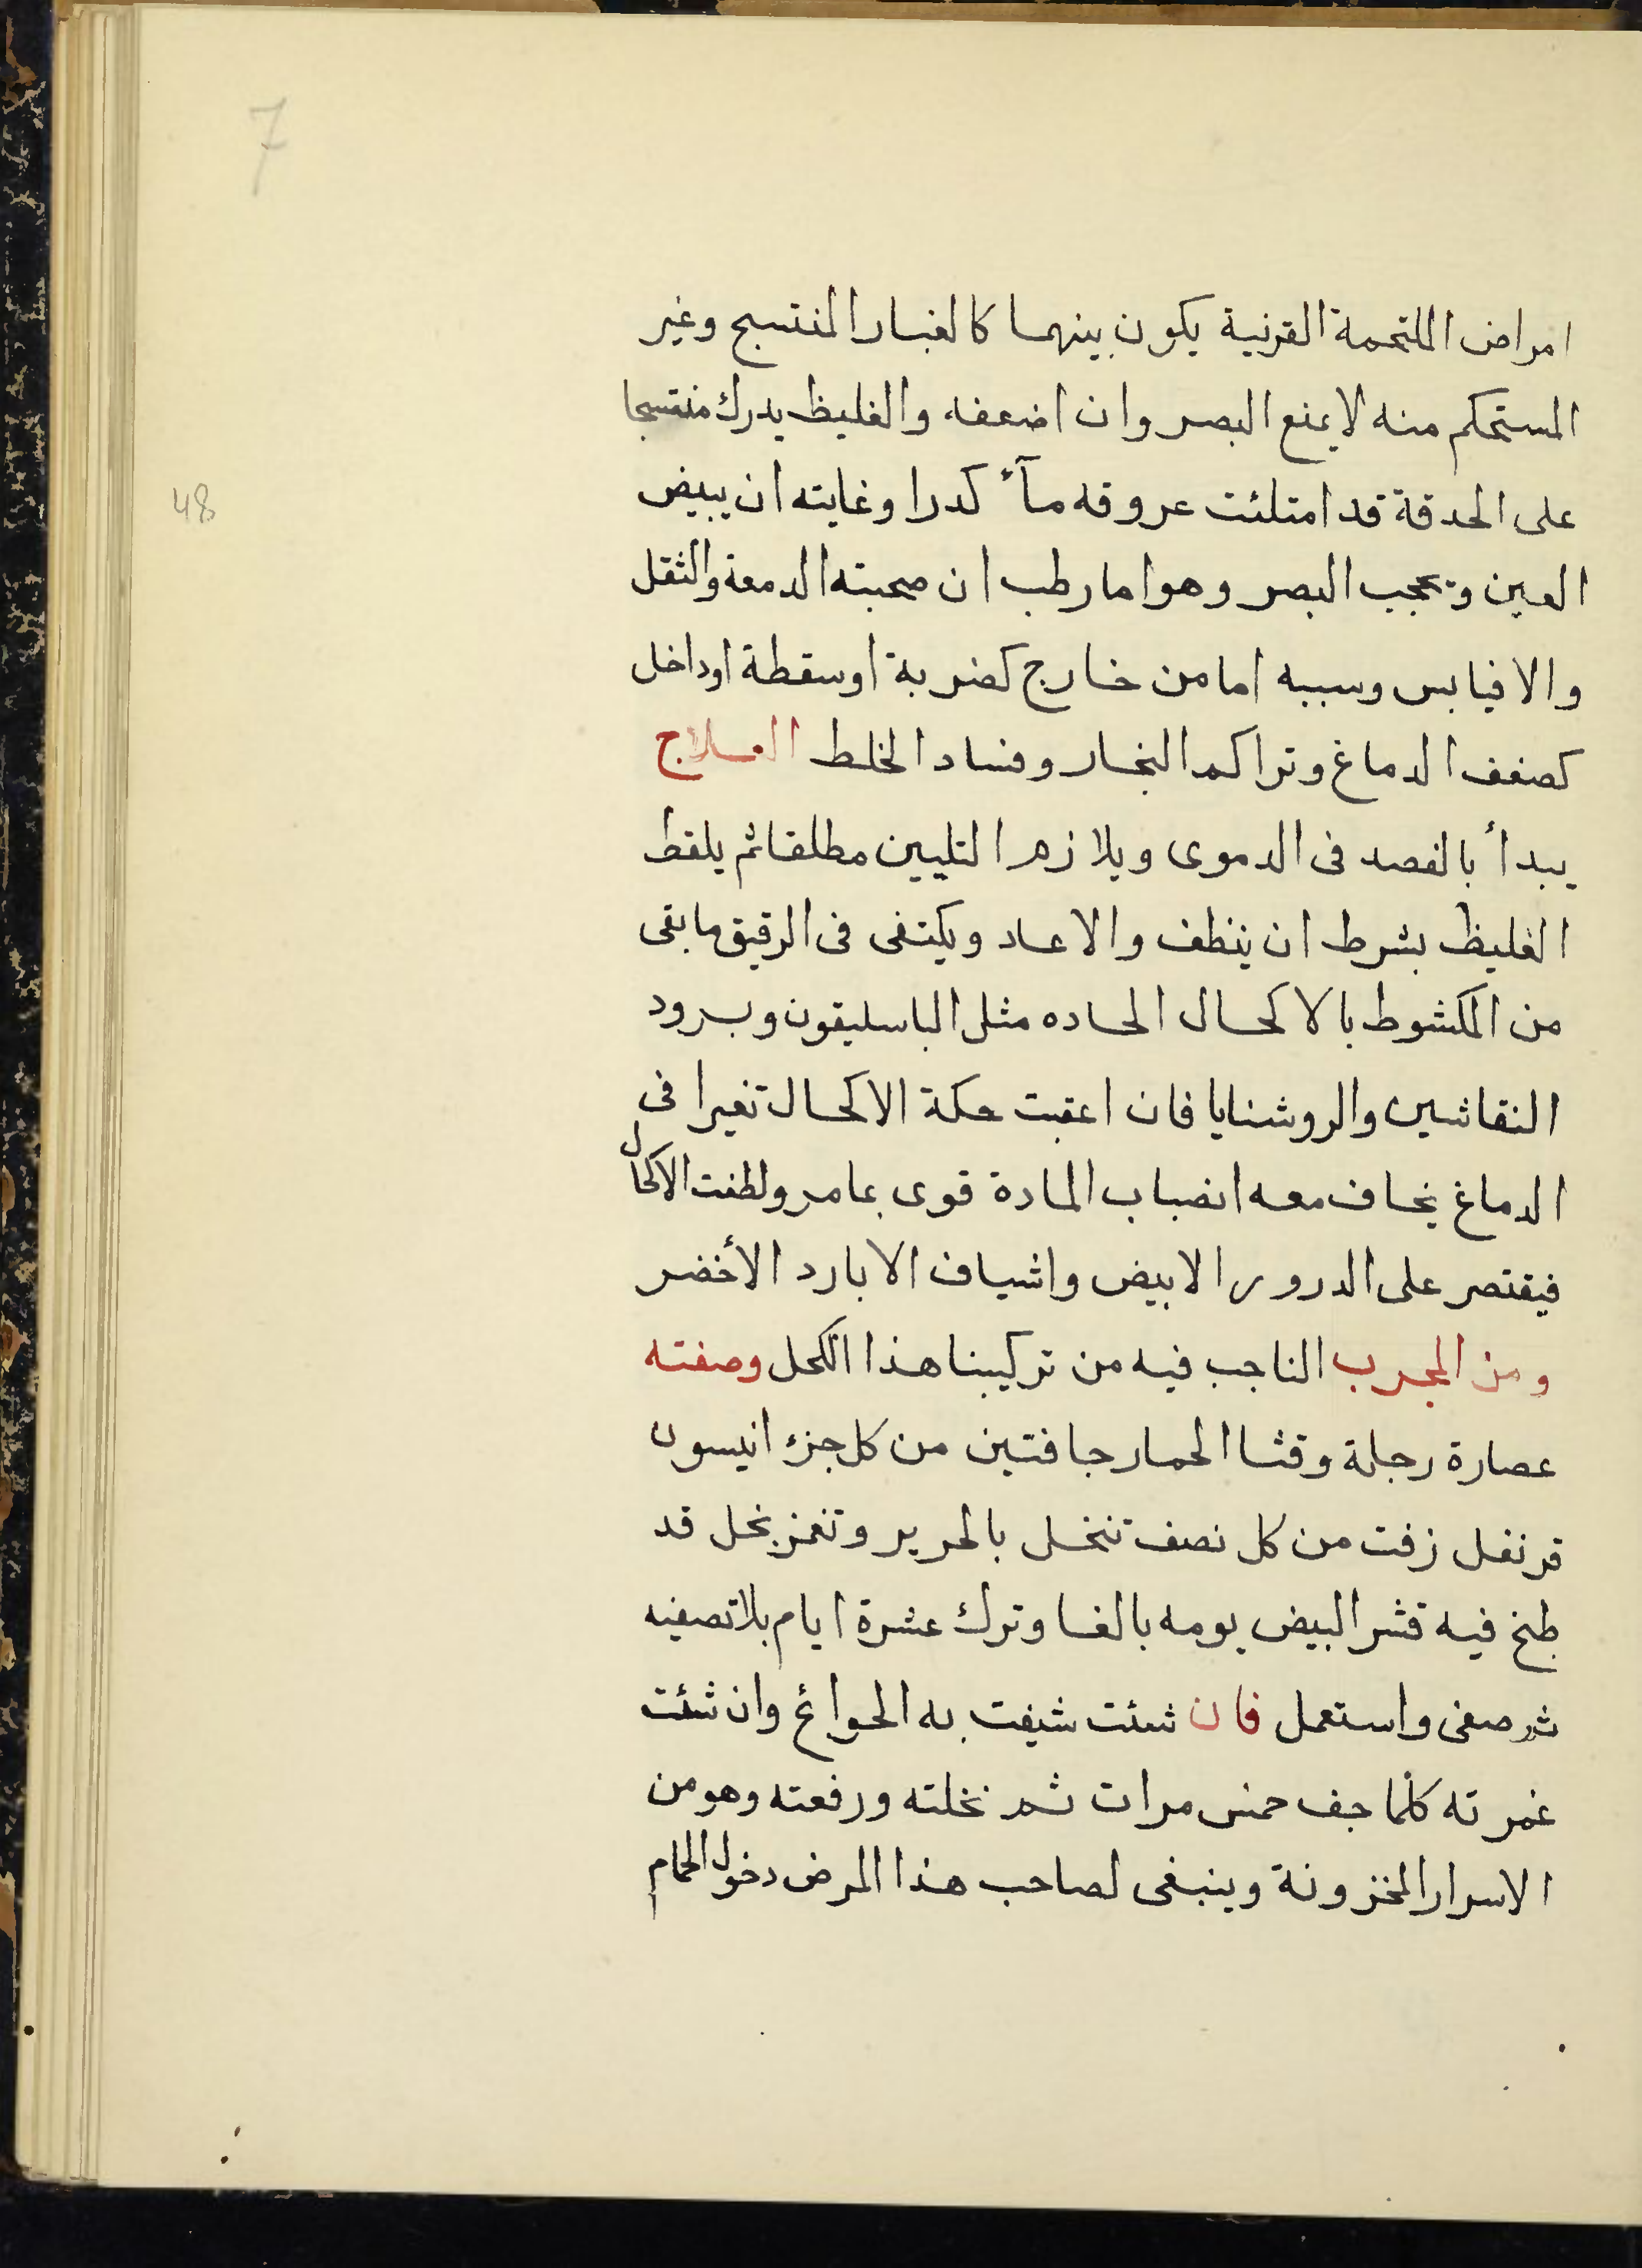 7
امراض الملتحمة القرنية يكون بينهما كالغبار المنتسج وغير
المستحكم منه لا يمنع البصر وان اضعفه والغليظ يدرك منتسجا
على الحدقة قد امتلئت عروقه مآءً كدرا وغايته ان يبيض
48
العين ويحجب البصر وهو اما رطب ان صحبته الدمعة والثقل
والا فيابس وسببه اما من خارج كضربة او سقطة او داخل
كضعف الدماغ وتراكم البخار وفساد الخلط العلاج
يبدأ بالفصد فى الدموى ويلازم التليين مطلقا ثم يلقط
الغليظ بشرط ان ينظف والا عاد ويكتفى فى الرقيق ما بقى
من المكشوط بالاكحال الحاده مثل الباسليقون وبرود
النقاشين والروشنايا فان اعقبت حكة الاكحال تغيرا فى
الدماغ يخاف معه انصباب المادة قوى بما مر ولطفت الاكحال
فيقتصر على الدرور الابيض واشياف الابارد الأخضر
ومن المجرب الناجب فيه من تركيبنا هذا الكحل وصفته
عصارة رجلة وقثا الحمار جافتين من كل جزء انيسون
قرنفل زفت من كل نصف تنخل بالحرير وتغمر بخل قد
طبخ فيه قشر البيض يومه بالغا وترك عشرة ايام بلا تصفيه
ثم صفى واستعمل فان شئت شيفت به الحوائج وان شئت
غمرته كلما جف خمس مرات ثم نخلته ورفعته وهو من
الاسرار المخزونة وينبغى لصاحب هذا المرض دخول الحمام